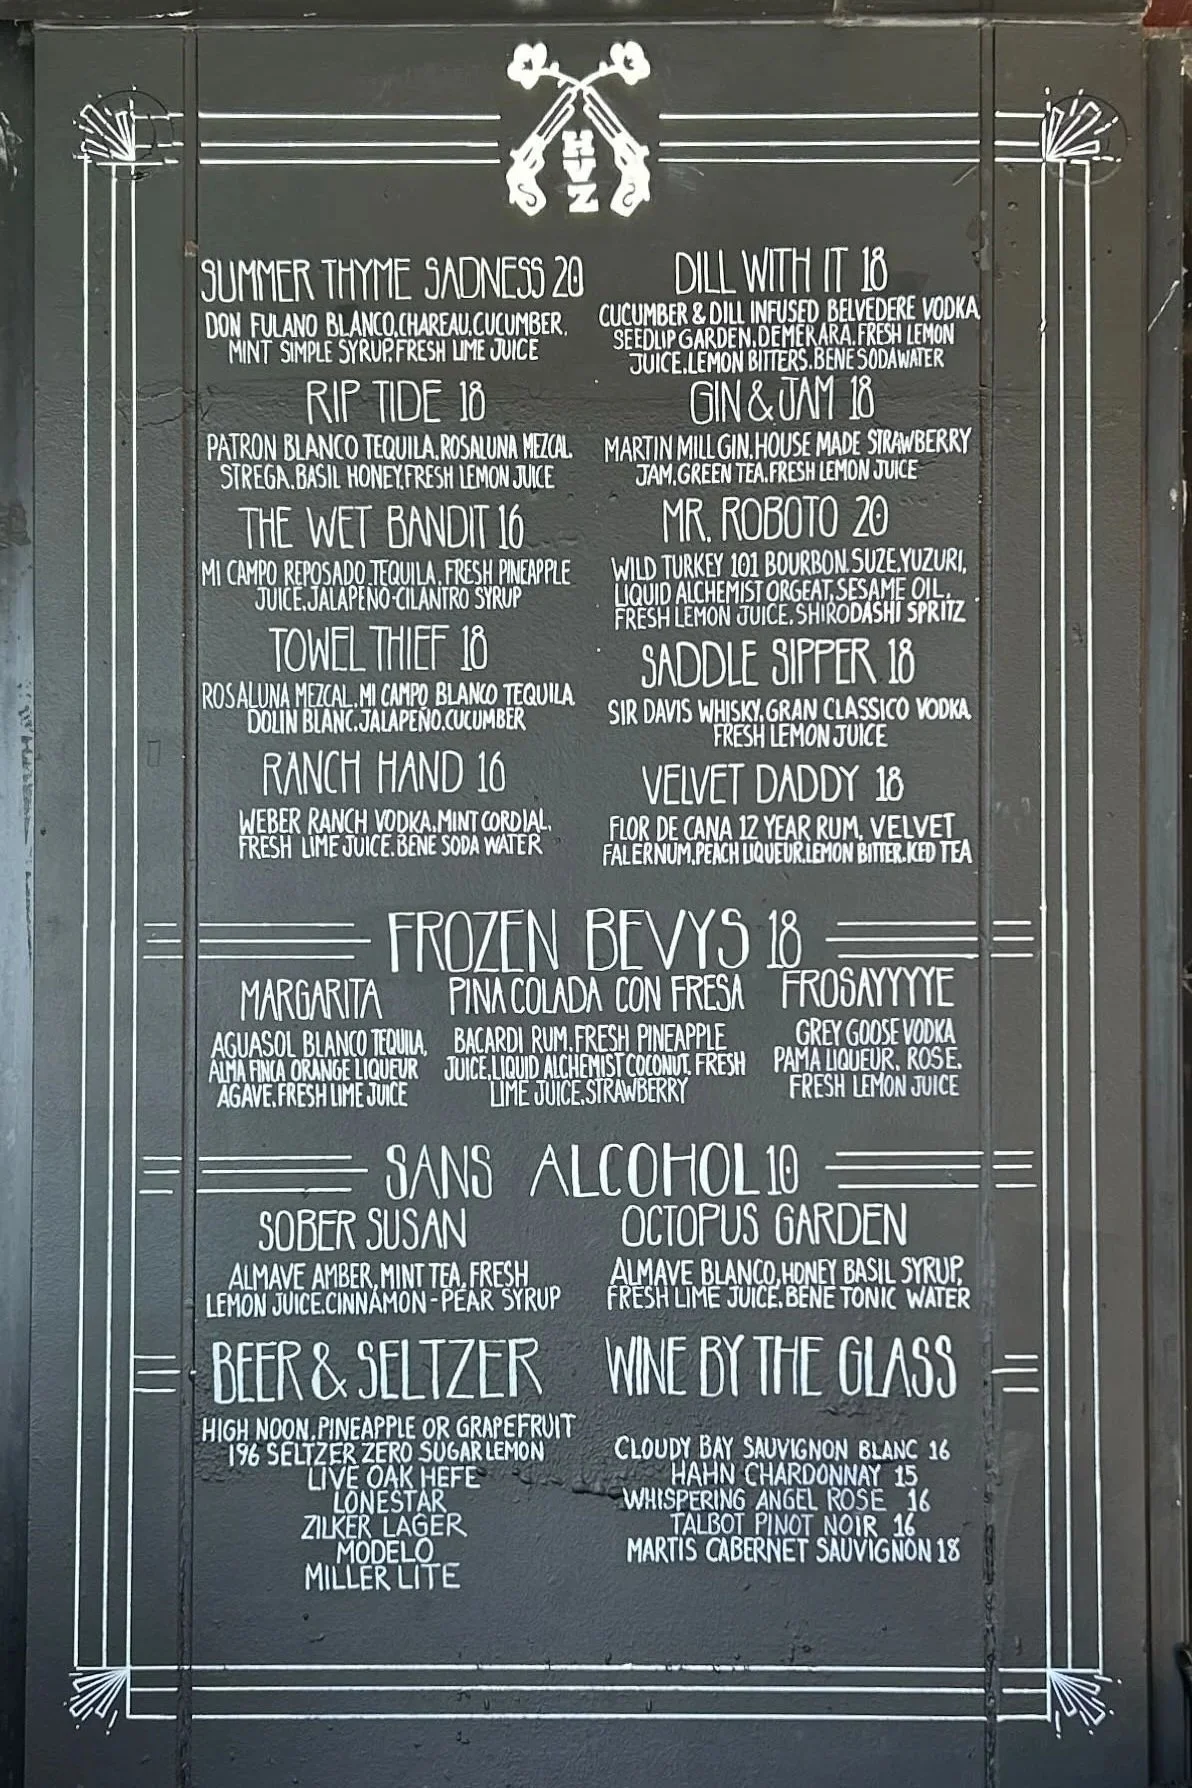 HVZ
SUMMER THYME SADNESS 20
DON FULANO BLANCO.CHAREAU.CUCUMBER.
MINT SIMPLE SYRUP.FRESH LIME JUICE
RIP TIDE 18
PATRON BLANCO TEQUILA.ROSALUNA MEZCAL
STREGA.BASIL HONEY.FRESH LEMON JUICE
THE WET BANDIT 16
MI CAMPO REPOSADO TEQUILA. FRESH PINEAPPLE
JUICE.JALAPEÑO-CILANTRO SYRUP
TOWEL THIEF 18
ROSALUNA MEZCAL.MI CAMPO BLANCO TEQUILA
DOLIN BLANC.JALAPEÑO.CUCUMBER
RANCH HAND 16
WEBER RANCH VODKA.MINT CORDIAL.
FRESH LIME JUICE.BENE SODA WATER
DILL WITH IT 18
CUCUMBER & DILL INFUSED BELVEDERE VODKA
SEEDLIP GARDEN.DEMERARA.FRESH LEMON
JUICE.LEMON BITTERS.BENE SODAWATER
GIN & JAM 18
MARTIN MILL GIN.HOUSE MADE STRAWBERRY
JAM.GREEN TEA.FRESH LEMON JUICE
MR. ROBOTO 20
WILD TURKEY 101 BOURBON.SUZE.YUZURI,
LIQUID ALCHEMIST ORGEAT,SESAME OIL,
FRESH LEMON JUICE. SHIRODASHI SPRITZ
SADDLE SIPPER 18
SIR DAVIS WHISKY.GRAN CLASSICO VODKA
FRESH LEMON JUICE
VELVET DADDY 18
FLOR DE CANA 12 YEAR RUM, VELVET
FALERNUM.PEACH LIQUEUR.LEMON BITTER.ICED TEA
FROZEN BEVYS 18
MARGARITA
AGUASOL BLANCO TEQUILA,
ALMA FINCA ORANGE LIQUEUR
AGAVE.FRESH LIME JUICE
PINA COLADA CON FRESA
BACARDI RUM.FRESH PINEAPPLE
JUICE.LIQUID ALCHEMIST COCONUT. FRESH
LIME JUICE.STRAWBERRY
FROSAYYYYE
GREY GOOSE VODKA
PAMA LIQUEUR. ROSE.
FRESH LEMON JUICE
SANS ALCOHOL 10
SOBER SUSAN
ALMAVE AMBER,MINT TEA, FRESH
LEMON JUICE.CINNAMON-PEAR SYRUP
OCTOPUS GARDEN
ALMAVE BLANCO,HONEY BASIL SYRUP,
FRESH LIME JUICE.BENE TONIC WATER
BEER & SELTZER
HIGH NOON.PINEAPPLE OR GRAPEFRUIT
196 SELTZER ZERO SUGAR LEMON
LIVE OAK HEFE
LONESTAR
ZILKER LAGER
MODELO
MILLER LITE
WINE BY THE GLASS
CLOUDY BAY SAUVIGNON BLANC 16
HAHN CHARDONNAY 15
WHISPERING ANGEL ROSE 16
TALBOT PINOT NOIR 16
MARTIS CABERNET SAUVIGNON 18